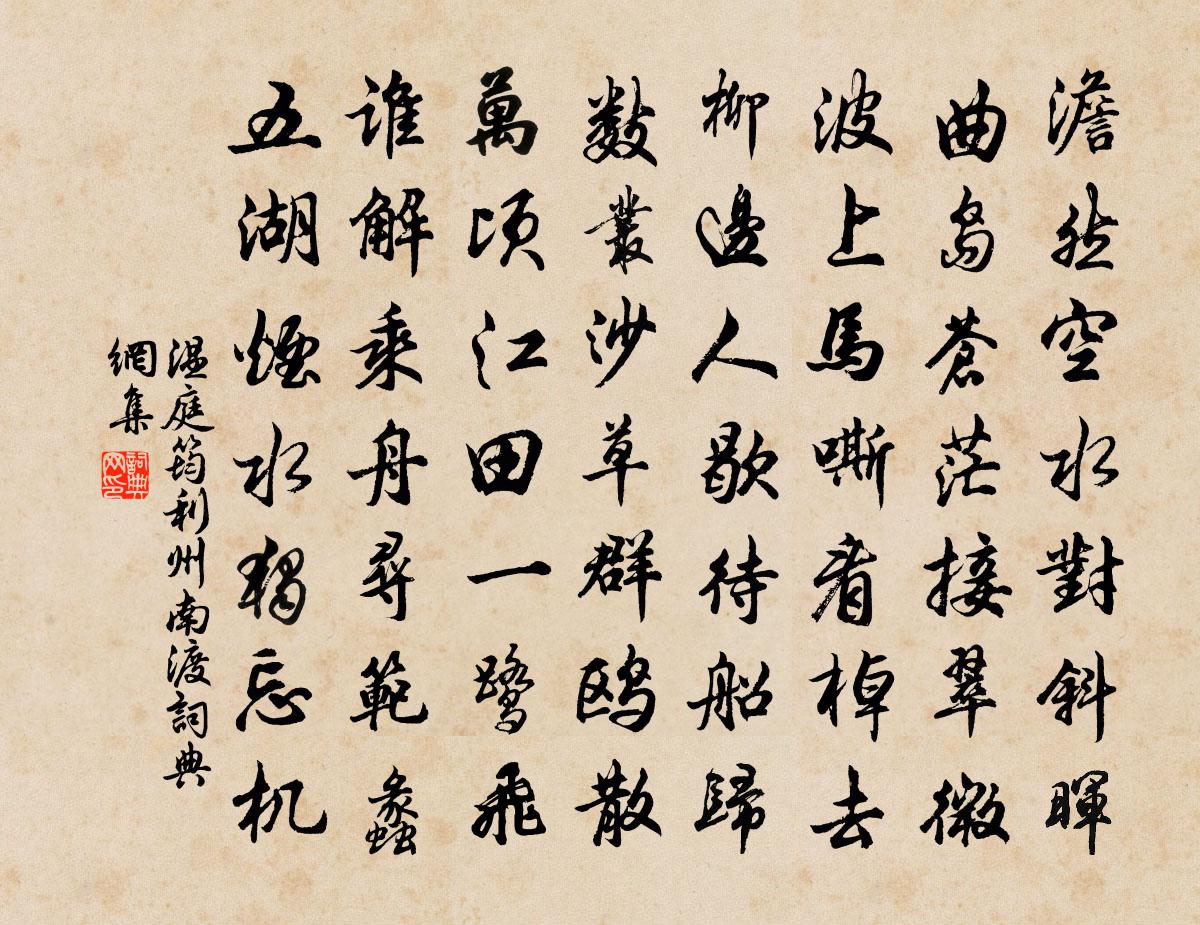 澹然空水對斜暉
曲岛蒼茫接翠微
波上馬嘶看棹去
柳邊人歇待船歸
數叢沙草群鸥散
萬顷江田一鹭飛
谁解乘舟尋範蠡
五湖煙水獨忘机
温庭筠利州南渡詞典
網集
詞典
网印